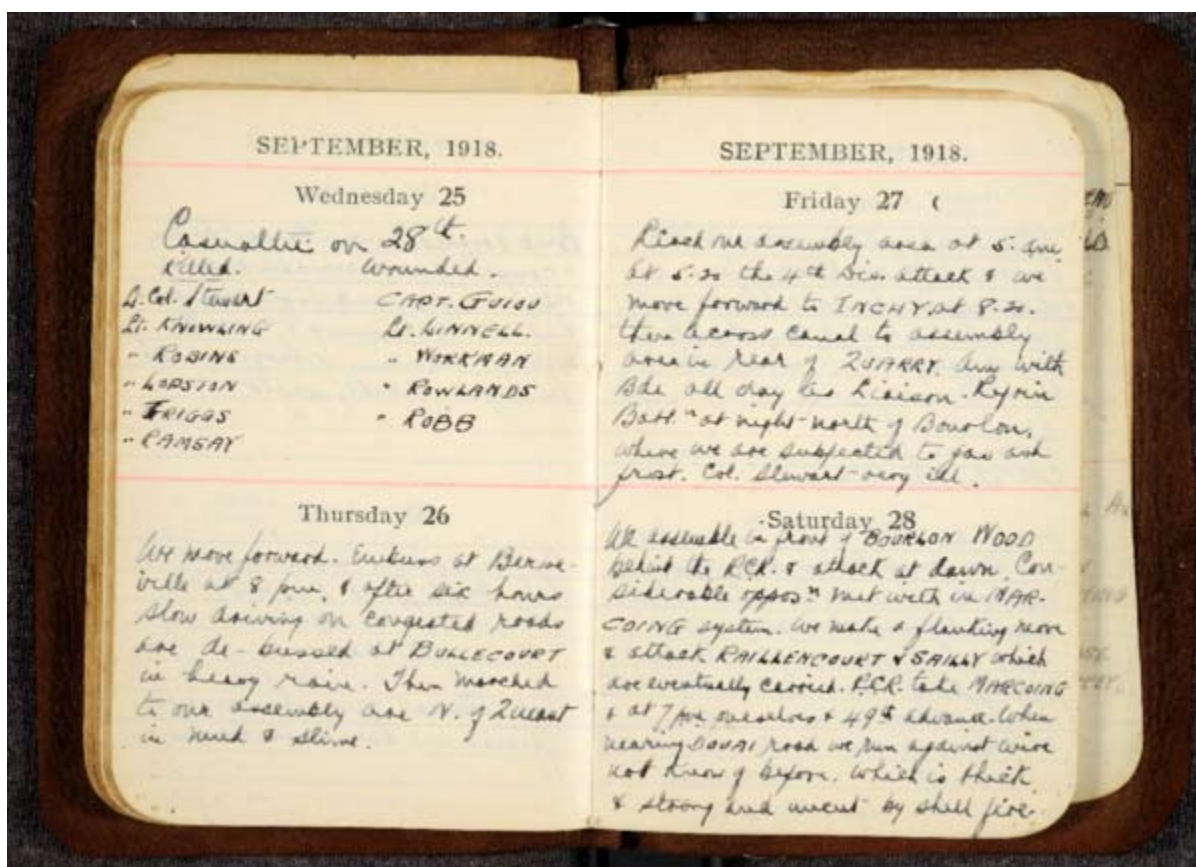 SEPTEMBER, 1918.
Wednesday 25
Casualties on 28th.
Killed. Wounded.
Lt. Col. Stewart CAPT. GUIOU
Lt. KNOWLING Lt. LINNELL.
" ROBINS " WORKMAN
" LOPSTON " ROWLANDS
" TRIGGS " ROBB
" RAMSAY
Thursday 26
We move forward. Embuss at Berne-
ville at 8 pm, & after six hours
slow driving on congested roads
are de-bussed at BULLECOURT
in heavy rain. Then marched
to our assembly area N. of Queant
in mud & slime.
SEPTEMBER, 1918.
Friday 27
Reach our assembly area at 5. am.
at 5.20 the 4th Div. attack & we
move forward to INCHY at 8.20.
then across canal to assembly
area in rear of QUARRY. Am with
Bde all day as Liaison. Rejoin
Battn at night north of Bourlon,
where we are subjected to gas and
frost. Col. Stewart very ill.
Saturday 28
We assemble in front of BOURLON WOOD
behind the RCR. & attack at dawn. Con-
siderable opposn met with in MAR-
COING system. We make a flanking move
& attack RAILLENCOURT & SAILLY which
are eventually carried. RCR. take MARCOING
& at 7 ourselves & 49th advance. When
nearing DOUAI road we run against wire
not know of before. which is thick
& strong and uncut by shell fire.